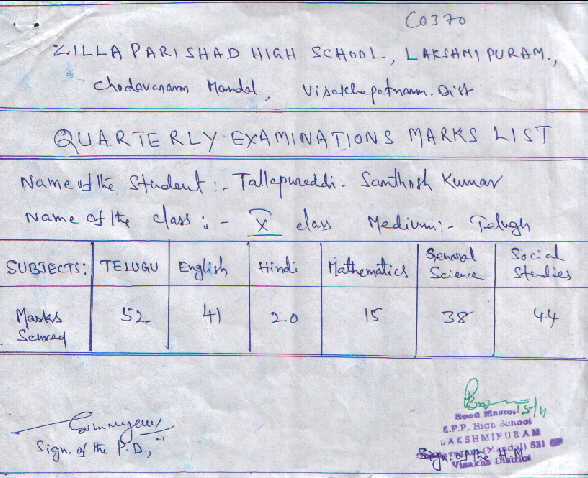 C0370
ZILLA PARISHAD HIGH SCHOOL., LAKSHMIPURAM.,
Chodavaram Mandal, Visakhapatnam. Dist
QUARTERLY EXAMINATIONS MARKS LIST
Name of the Student :- Tallapureddi. Santhosh Kumar
Name of the class :- X class Medium :- Telugu
SUBJECTS: TELUGU English Hindi Mathematics General Science Social Studies
Marks Scored 52 41 20 15 38 44
Sign. of the P.D,
Head Master
Z.P.P. High School
LAKSHMIPURAM
Sign. of the H.M
Visakha District